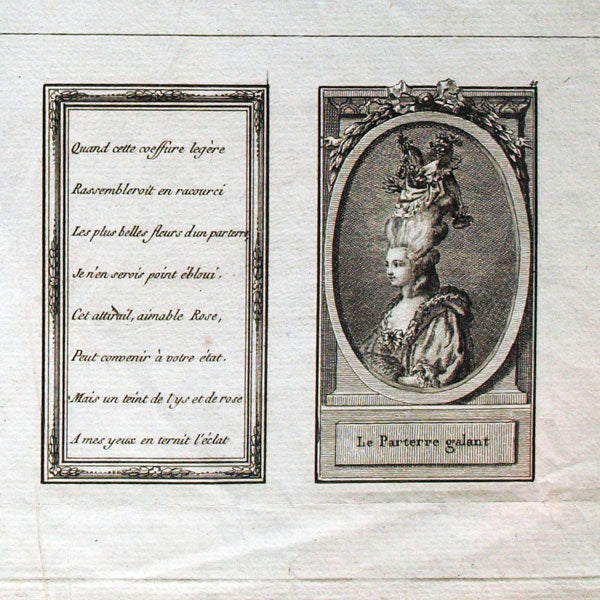 Quand cette coeffure legère
Rassembleroit en racourci
Les plus belles fleurs d'un parterre,
Je n'en serois point ébloui.
Cet attirail, aimable Rose,
Peut convenir à votre état.
Mais un teint de lys et de rose
A mes yeux en ternit l'éclat
Le Parterre galant